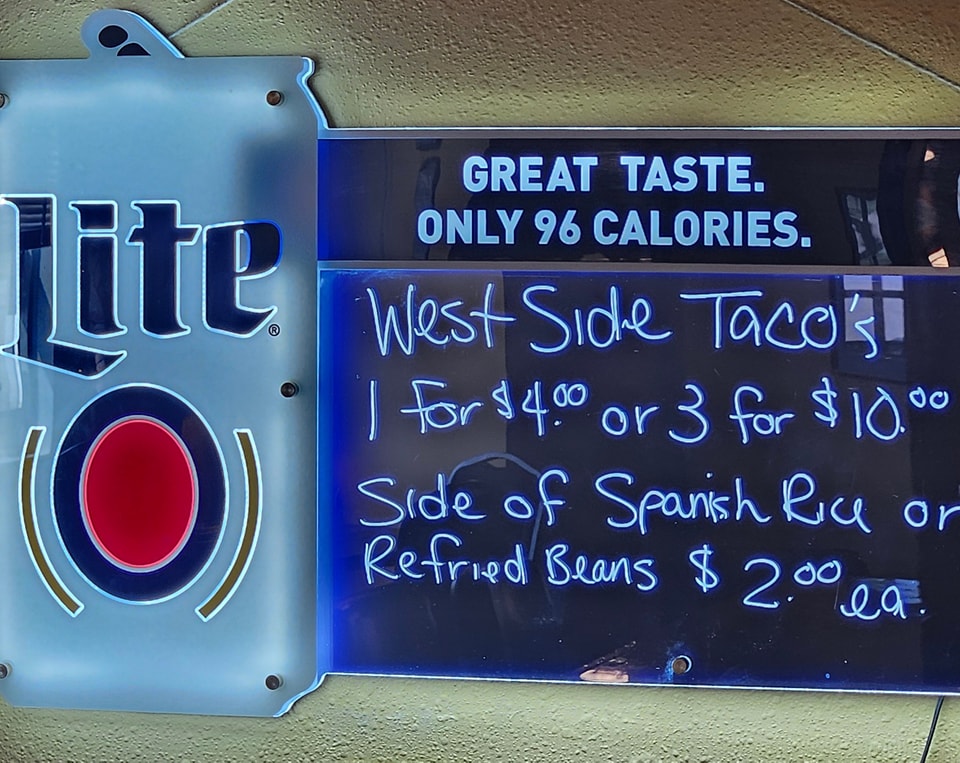 Lite®
GREAT TASTE.
ONLY 96 CALORIES.
West Side Taco's
1 for $4.00 or 3 for $10.00
Side of Spanish Rice or
Refried Beans $2.00 ea.